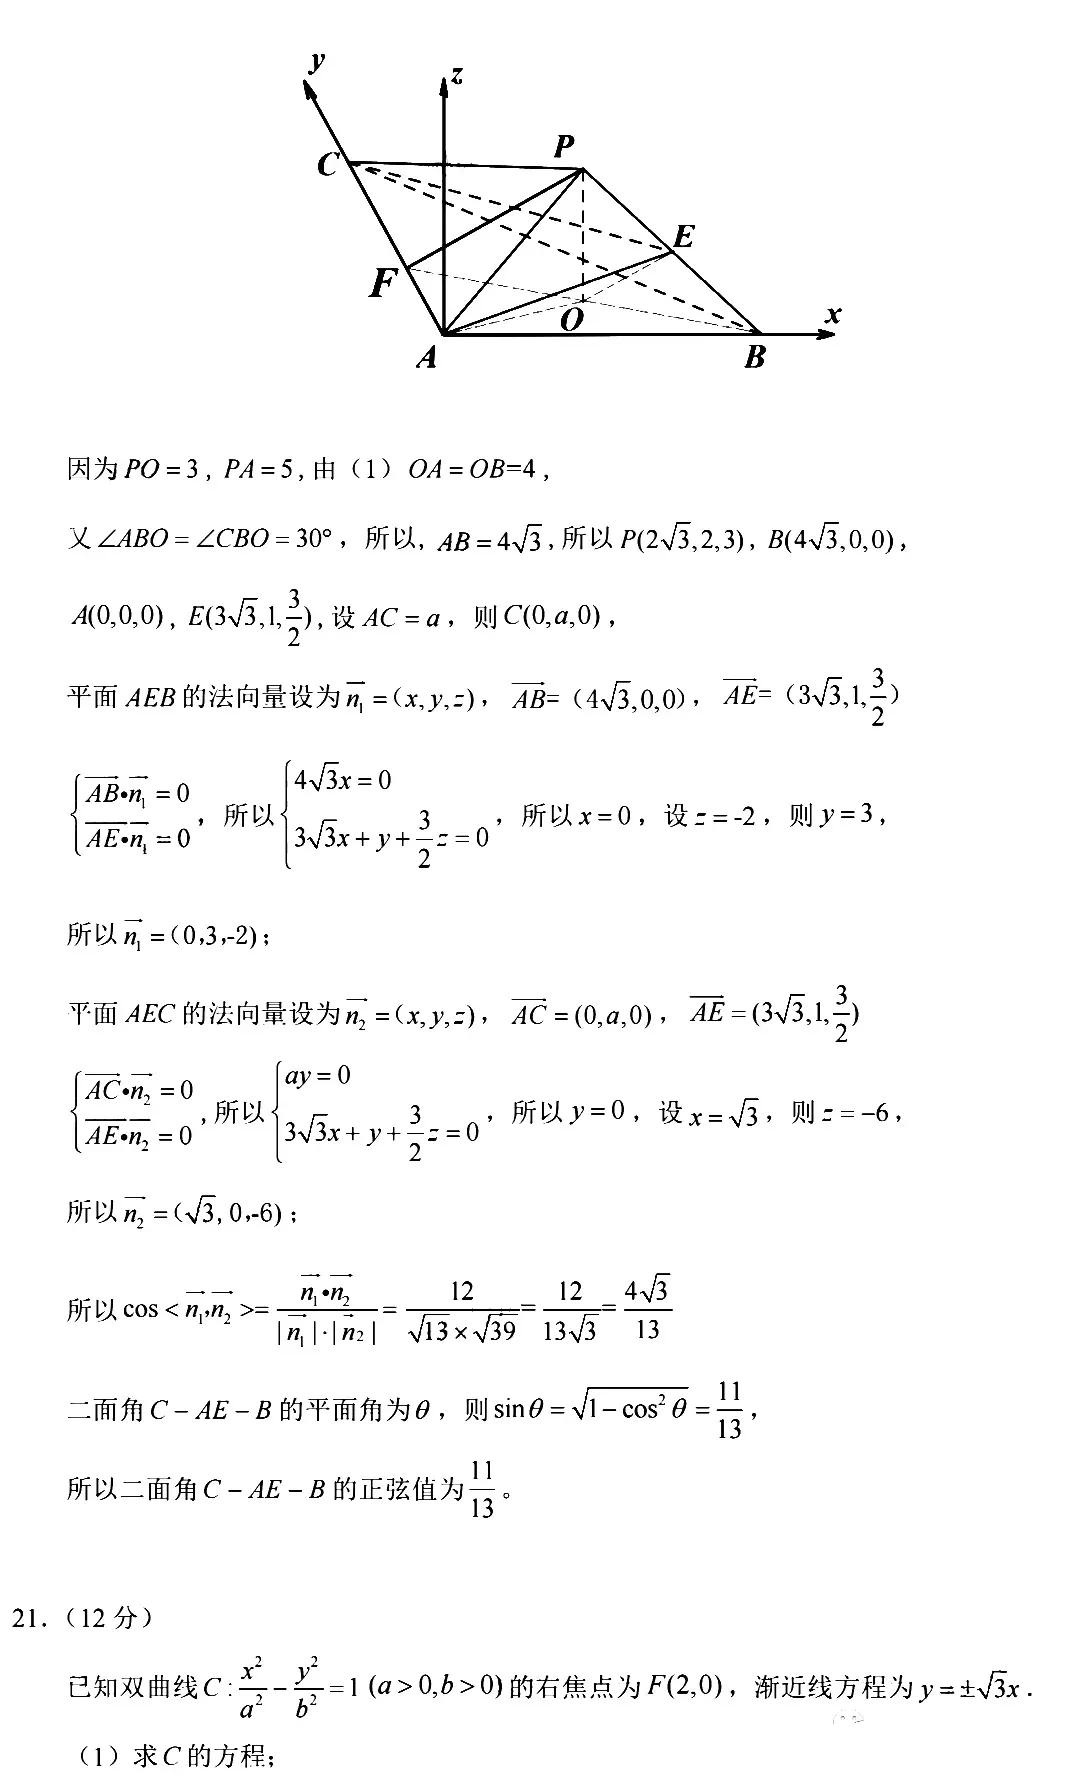 y
z
C
P
E
F
O
x
A
B
因为PO=3，PA=5，由（1）OA=OB=4，
又∠ABO=∠CBO=30°，所以，AB=4√3，所以P(2√3,2,3)，B(4√3,0,0)，
A(0,0,0)，E(3√3,1,3/2)，设AC=a，则C(0,a,0)，
平面AEB的法向量设为n₁→=(x,y,z)，AB→=（4√3,0,0)，AE→=（3√3,1,3/2）
{AB→•n₁→=0
AE→•n₁→=0，所以{4√3x=0
3√3x+y+3/2z=0，所以x=0，设z=-2，则y=3，
所以n₁→=(0,3,-2)；
平面AEC的法向量设为n₂→=(x,y,z)，AC→=(0,a,0)，AE→=(3√3,1,3/2)
{AC→•n₂→=0
AE→•n₂→=0，所以{ay=0
3√3x+y+3/2z=0，所以y=0，设x=√3，则z=−6，
所以n₂→=(√3,0,-6)；
所以cos<n₁→,n₂→>=n₁→•n₂→/|n₁→|·|n₂→|=12/√13×√39=12/13√3=4√3/13
二面角C−AE−B的平面角为θ，则sinθ=√1−cos²θ=11/13，
所以二面角C−AE−B的正弦值为11/13。
21.（12分）
已知双曲线C:x²/a²−y²/b²=1(a>0,b>0)的右焦点为F(2,0)，渐近线方程为y=±√3x．
（1）求C的方程；